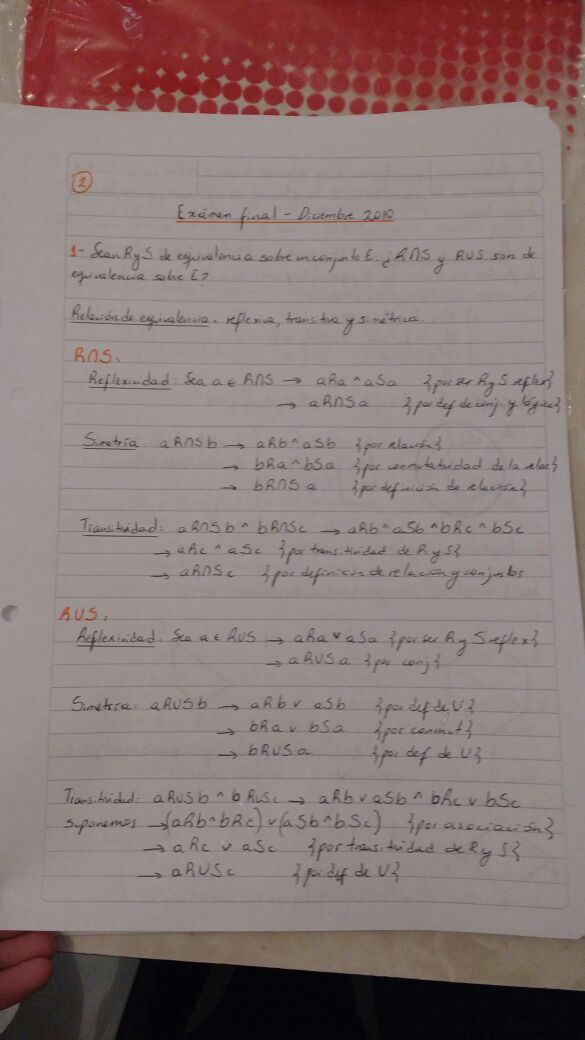 2
Exámen final - Diciembre 2010
1- Sean R y S de equivalencia sobre un conjunto E. ¿R∩S y R∪S son de
equivalencia sobre E?
Relación de equivalencia = reflexiva, transitiva y simétrica.
R∩S:
Reflexividad: Sea a ∈ R∩S → aRa ^ aSa {por ser R y S reflex}
→ aR∩Sa {por def de conj. y lógica}
Simetría: aR∩Sb → aRb ^ aSb {por relación}
→ bRa ^ bSa {por conmutatividad de la relac}
→ bR∩Sa {por definición de relación}
Transitividad: aR∩Sb ^ bR∩Sc → aRb ^ aSb ^ bRc ^ bSc
→ aRc ^ aSc {por transitividad de R y S}
→ aR∩Sc {por definicion de relación y conjuntos
R∪S:
Reflexividad: Sea a ∈ R∪S → aRa v aSa {por ser R y S reflex}
→ aR∪Sa {por conj}
Simetría: aR∪Sb → aRb v aSb {por def de U}
→ bRa v bSa {por conmut}
→ bR∪Sa {por def de U}
Transitividad: aR∪Sb ^ bR∪Sc → aRb v aSb ^ bRc v bSc
suponemos → (aRb ^ bRc) v (aSb ^ bSc) {por asociación}
→ aRc v aSc {por transitividad de R y S}
→ aR∪Sc {por def de U}